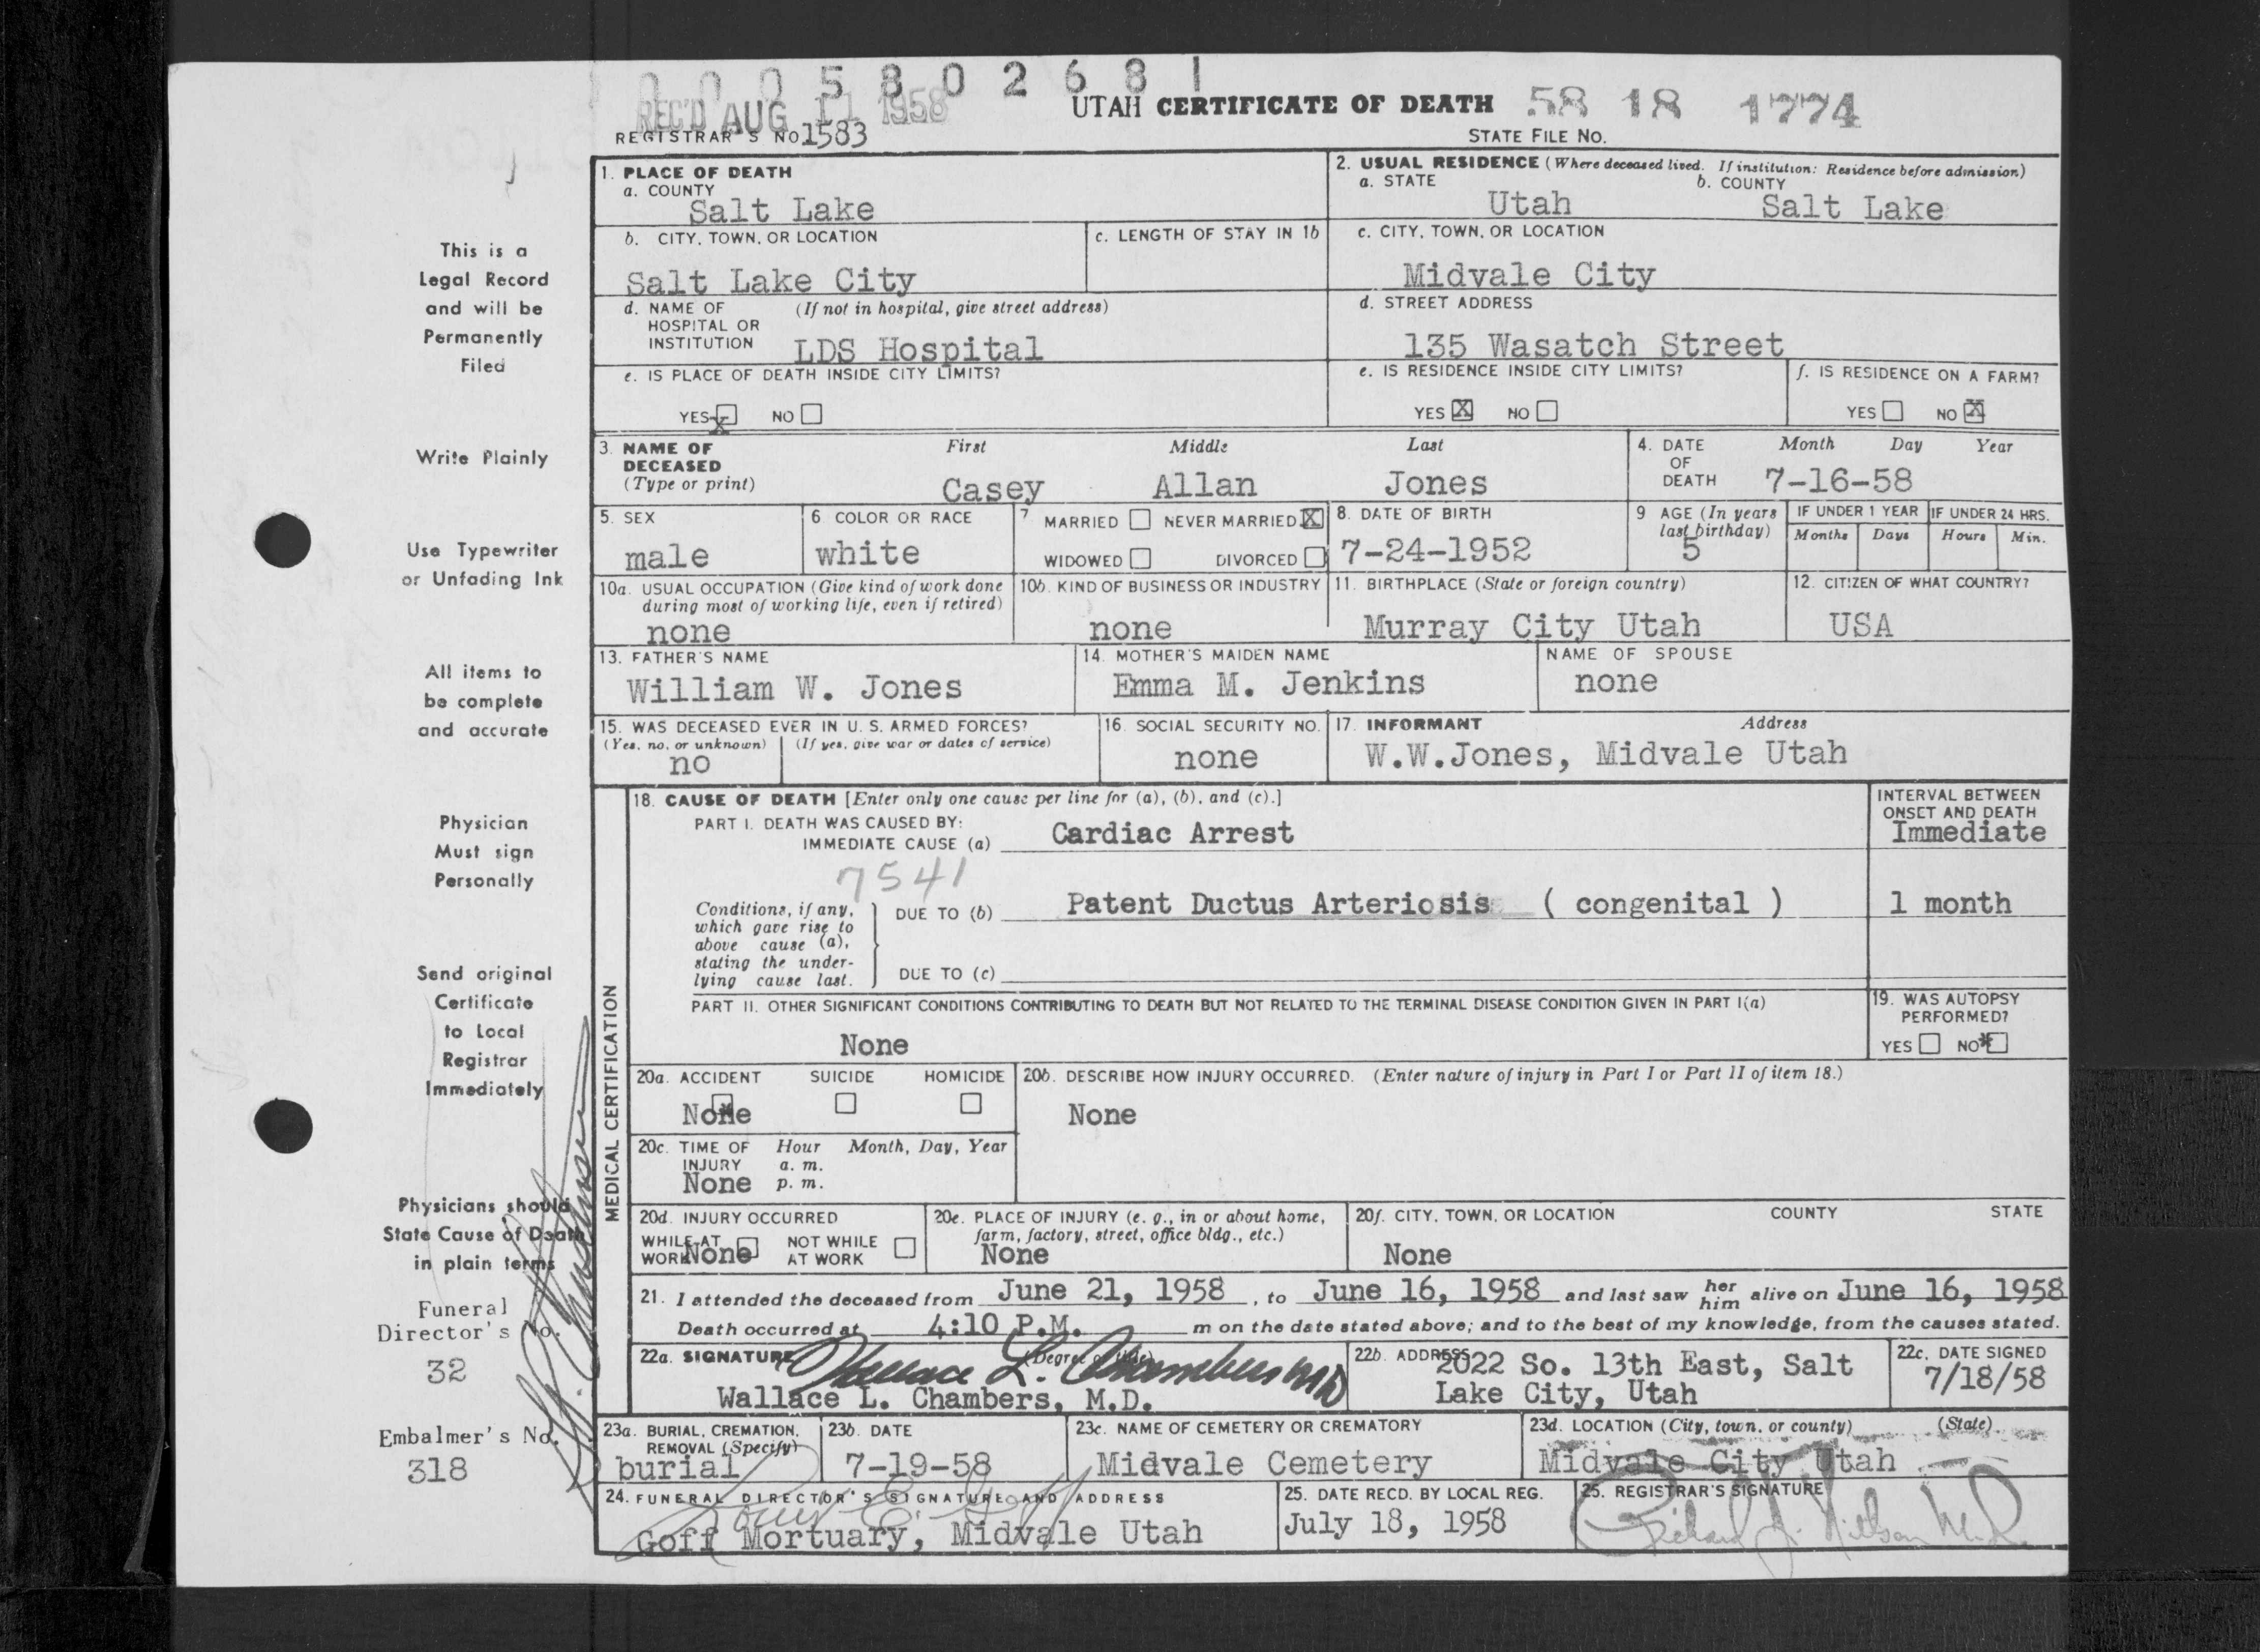 0 0 0 5 8 0 2 6 8 1
REC'D AUG 11 1958
UTAH CERTIFICATE OF DEATH 58 18 1774
REGISTRAR'S NO 1583
STATE FILE NO.
1. PLACE OF DEATH
a. COUNTY
Salt Lake
2. USUAL RESIDENCE (Where deceased lived. If institution: Residence before admission)
a. STATE b. COUNTY
Utah Salt Lake
b. CITY, TOWN, OR LOCATION
Salt Lake City
c. LENGTH OF STAY IN 1b
c. CITY, TOWN, OR LOCATION
Midvale City
d. NAME OF (If not in hospital, give street address)
HOSPITAL OR
INSTITUTION LDS Hospital
d. STREET ADDRESS
135 Wasatch Street
e. IS PLACE OF DEATH INSIDE CITY LIMITS?
YES X NO
e. IS RESIDENCE INSIDE CITY LIMITS?
YES X NO
f. IS RESIDENCE ON A FARM?
YES NO X
3. NAME OF First Middle Last
DECEASED
(Type or print) Casey Allan Jones
4. DATE Month Day Year
OF
DEATH 7-16-58
5. SEX
male
6 COLOR OR RACE
white
7 MARRIED NEVER MARRIED X
WIDOWED DIVORCED
8. DATE OF BIRTH
7-24-1952
9 AGE (In years
last birthday)
5
IF UNDER 1 YEAR IF UNDER 24 HRS.
Months Days Hours Min.
10a. USUAL OCCUPATION (Give kind of work done
during most of working life, even if retired)
none
10b. KIND OF BUSINESS OR INDUSTRY
none
11. BIRTHPLACE (State or foreign country)
Murray City Utah
12. CITIZEN OF WHAT COUNTRY?
USA
13. FATHER'S NAME
William W. Jones
14. MOTHER'S MAIDEN NAME
Emma M. Jenkins
NAME OF SPOUSE
none
15. WAS DECEASED EVER IN U. S. ARMED FORCES?
(Yes, no, or unknown) (If yes, give war or dates of service)
no
16. SOCIAL SECURITY NO.
none
17. INFORMANT Address
W.W.Jones, Midvale Utah
MEDICAL CERTIFICATION
18. CAUSE OF DEATH [Enter only one cause per line for (a), (b), and (c).]
PART I. DEATH WAS CAUSED BY:
IMMEDIATE CAUSE (a) Cardiac Arrest
INTERVAL BETWEEN
ONSET AND DEATH
Immediate
7541
Conditions, if any,
which gave rise to
above cause (a),
stating the under-
lying cause last.
DUE TO (b) Patent Ductus Arteriosis ( congenital ) 1 month
DUE TO (c)
PART II. OTHER SIGNIFICANT CONDITIONS CONTRIBUTING TO DEATH BUT NOT RELATED TO THE TERMINAL DISEASE CONDITION GIVEN IN PART I(a)
None
19. WAS AUTOPSY
PERFORMED?
YES NO
20a. ACCIDENT SUICIDE HOMICIDE
None
20b. DESCRIBE HOW INJURY OCCURRED. (Enter nature of injury in Part I or Part II of item 18.)
None
20c. TIME OF Hour Month, Day, Year
INJURY a. m.
None p. m.
20d. INJURY OCCURRED
WHILE AT NOT WHILE
WORK None AT WORK
20e. PLACE OF INJURY (e. g., in or about home,
farm, factory, street, office bldg., etc.)
None
20f. CITY, TOWN, OR LOCATION COUNTY STATE
None
21. I attended the deceased from June 21, 1958, to June 16, 1958 and last saw her him alive on June 16, 1958
Death occurred at 4:10 P.M. m on the date stated above; and to the best of my knowledge, from the causes stated.
22a. SIGNATURE (Degree or title)
Wallace L. Chambers MD
Wallace L. Chambers, M.D.
22b. ADDRESS
2022 So. 13th East, Salt
Lake City, Utah
22c. DATE SIGNED
7/18/58
23a. BURIAL, CREMATION,
REMOVAL (Specify)
burial
23b. DATE
7-19-58
23c. NAME OF CEMETERY OR CREMATORY
Midvale Cemetery
23d. LOCATION (City, town, or county) (State)
Midvale City Utah
24. FUNERAL DIRECTOR'S SIGNATURE AND ADDRESS
Goff Mortuary, Midvale Utah
25. DATE RECD. BY LOCAL REG.
July 18, 1958
25. REGISTRAR'S SIGNATURE
This is a
Legal Record
and will be
Permanently
Filed
Write Plainly
Use Typewriter
or Unfading Ink
All items to
be complete
and accurate
Physician
Must sign
Personally
Send original
Certificate
to Local
Registrar
Immediately
Physicians should
State Cause of Death
in plain terms
Funeral
Director's No.
32
Embalmer's No.
318